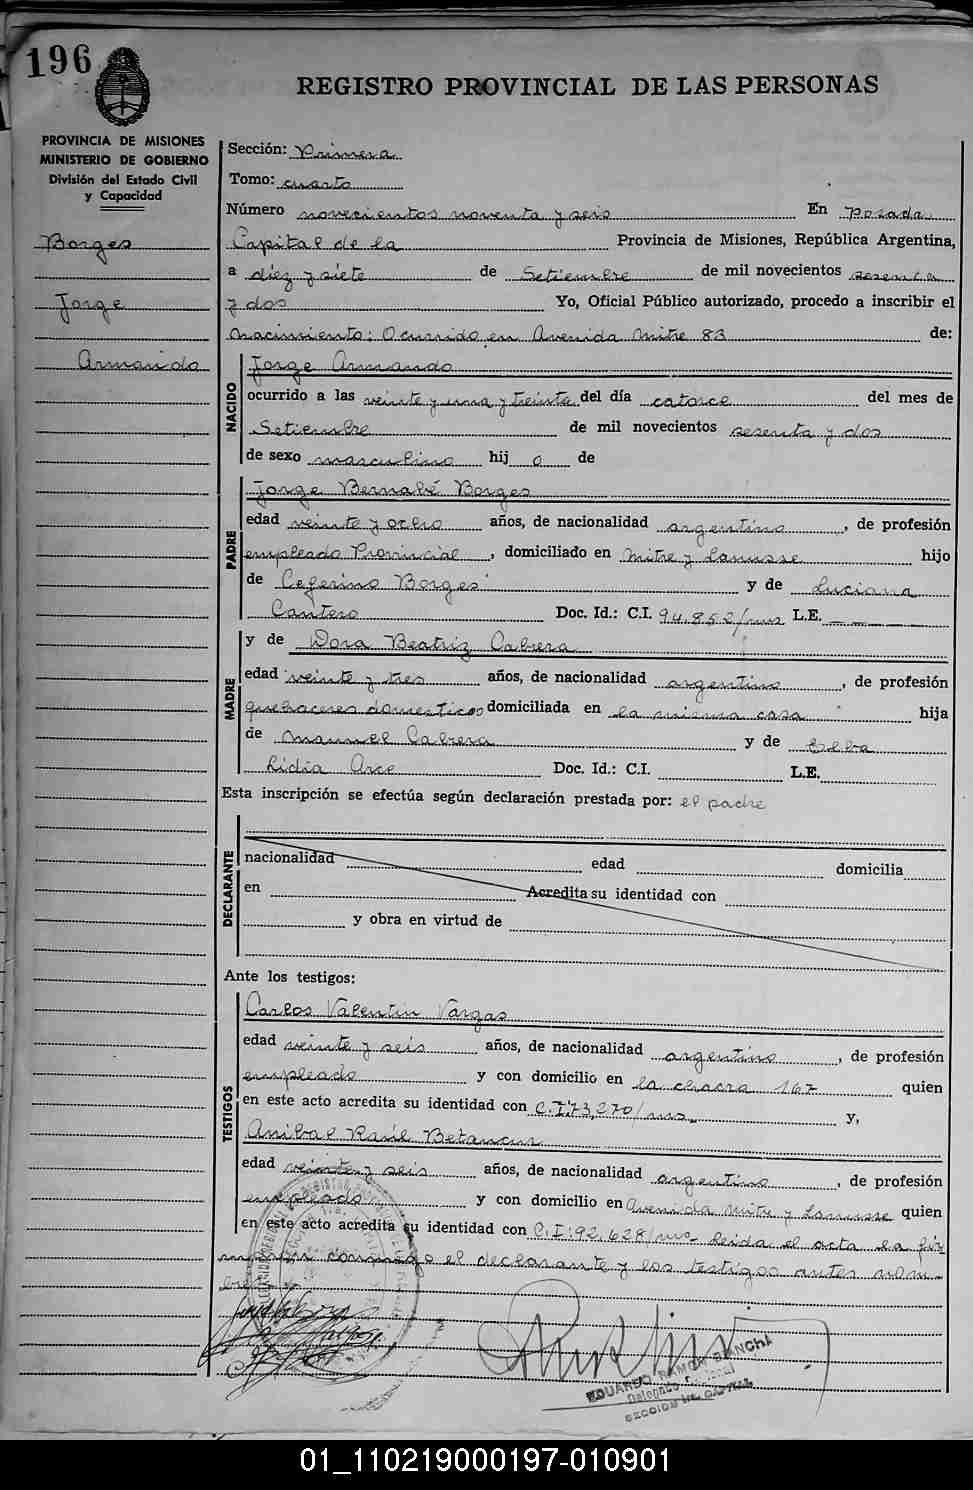 196
REGISTRO PROVINCIAL DE LAS PERSONAS
PROVINCIA DE MISIONES
MINISTERIO DE GOBIERNO
División del Estado Civil
y Capacidad
Borges
Jorge
Armando
Sección: Primera
Tomo: cuarto
Número novecientos noventa y seis En Posadas
Capital de la Provincia de Misiones, República Argentina,
a diez y siete de Setiembre de mil novecientos sesenta
y dos Yo, Oficial Público autorizado, procedo a inscribir el
nacimiento: Ocurrido en Avenida Mitre 83 de:
NACIDO
Jorge Armando
ocurrido a las veinte y una y treinta del día catorce del mes de
Setiembre de mil novecientos sesenta y dos
de sexo masculino hij o de
PADRE
Jorge Bernabé Borges
edad veinte y ocho años, de nacionalidad argentino, de profesión
empleado Provincial, domiciliado en Mitre y Lanusse hijo
de Ceferino Borges y de Luciana
Cantero Doc. Id.: C.I. 94.852/mnes L.E.
MADRE
y de Dora Beatriz Cabrera
edad veinte y tres años, de nacionalidad argentina, de profesión
quehaceres domesticos domiciliada en la misma casa hija
de Manuel Cabrera y de Elba
Lidia Arce Doc. Id.: C.I. L.E.
Esta inscripción se efectúa según declaración prestada por: el padre
DECLARANTE
nacionalidad edad domicilia
en Acredita su identidad con
y obra en virtud de
Ante los testigos:
TESTIGOS
Carlos Valentin Vargas
edad veinte y seis años, de nacionalidad argentino, de profesión
empleado y con domicilio en la chacra 167 quien
en este acto acredita su identidad con C.I. 73,270/mns y,
Anibal Raúl Betancur
edad veinte y seis años, de nacionalidad argentino, de profesión
empleado y con domicilio en Avenida Mitre y Lanusse quien
en este acto acredita su identidad con C.I: 92.628/mns Leida el acta la fir
conmigo el declarante y los testigos antes nom-
EDUARDO RAMON BIANCHI
Delegado
SECCION DE CAPITAL
01_110219000197-010901